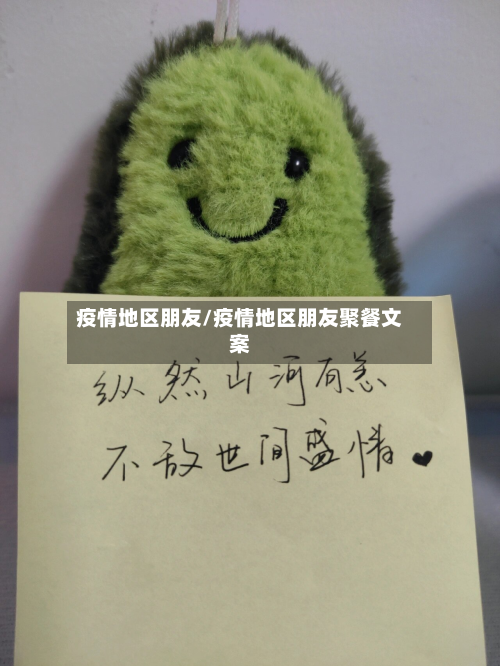 疫情地区朋友/疫情地区朋友聚餐文
案
纵然山河有恙
不敌世间盛情